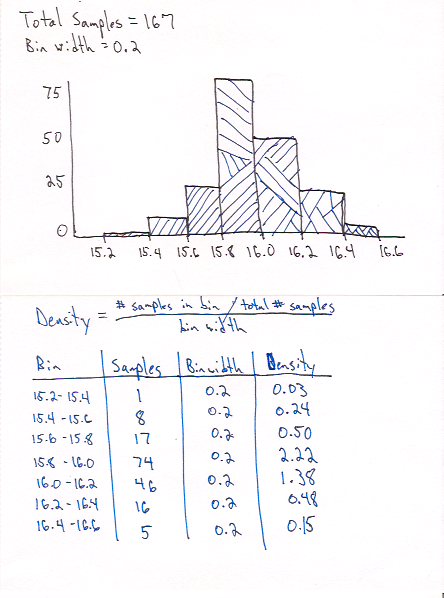 Total Samples = 167
Bin width = 0.2
75
50
25
0
15.2 15.4 15.6 15.8 16.0 16.2 16.4 16.6
Density = # samples in bin / total # samples
bin width
Bin Samples Binwidth Density
15.2-15.4 1 0.2 0.03
15.4-15.6 8 0.2 0.24
15.6-15.8 17 0.2 0.50
15.8-16.0 74 0.2 2.22
16.0-16.2 46 0.2 1.38
16.2-16.4 16 0.2 0.48
16.4-16.6 5 0.2 0.15